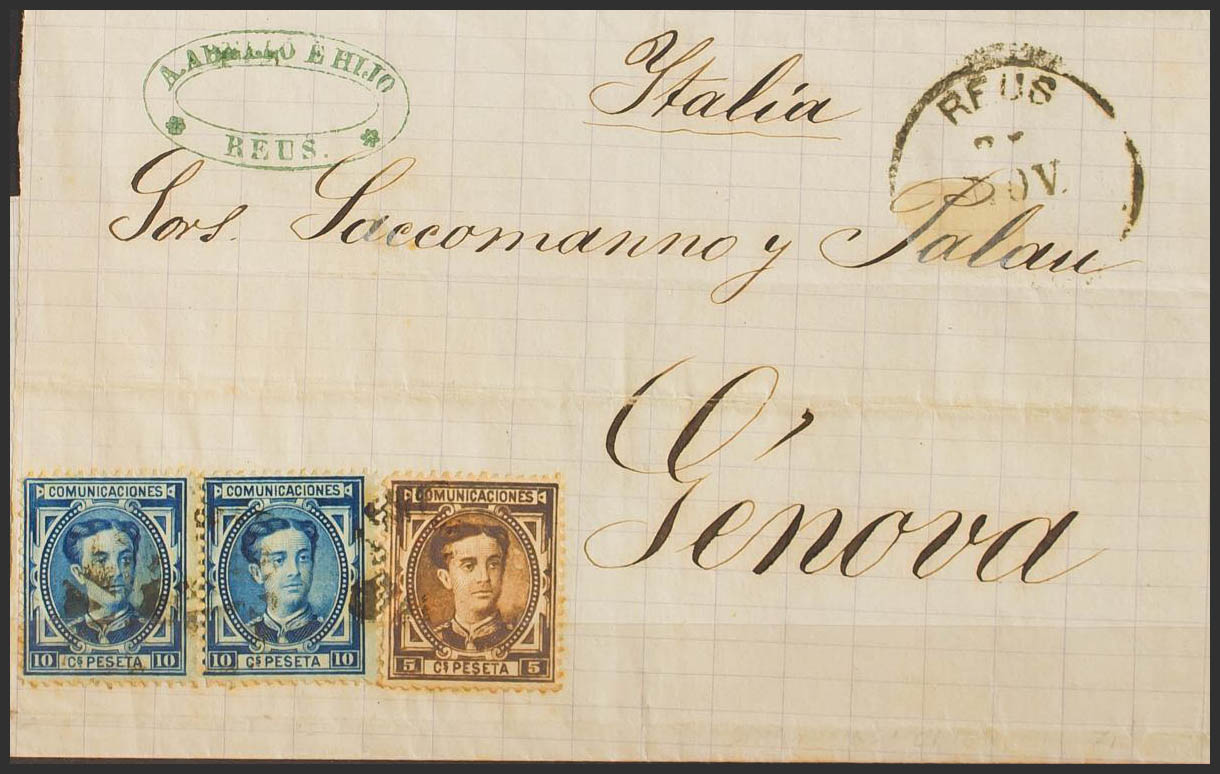 A. ABELLÓ E HIJO
REUS.
Italia
REUS
NOV.
Sors. Saccomanno y Palau
Génova
COMUNICACIONES
10 Cs PESETA 10
COMUNICACIONES
10 Cs PESETA 10
COMUNICACIONES
5 Cs PESETA 5